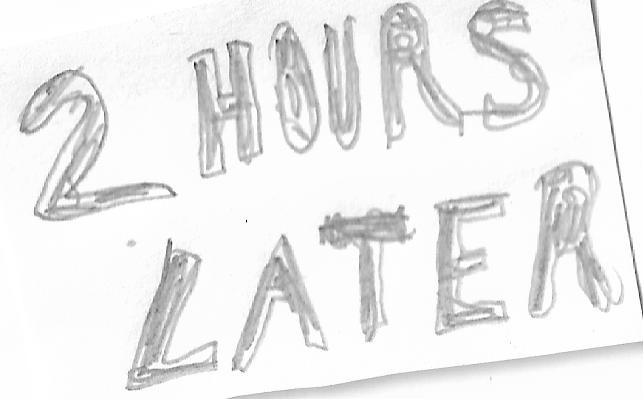 2 HOURS
LATER